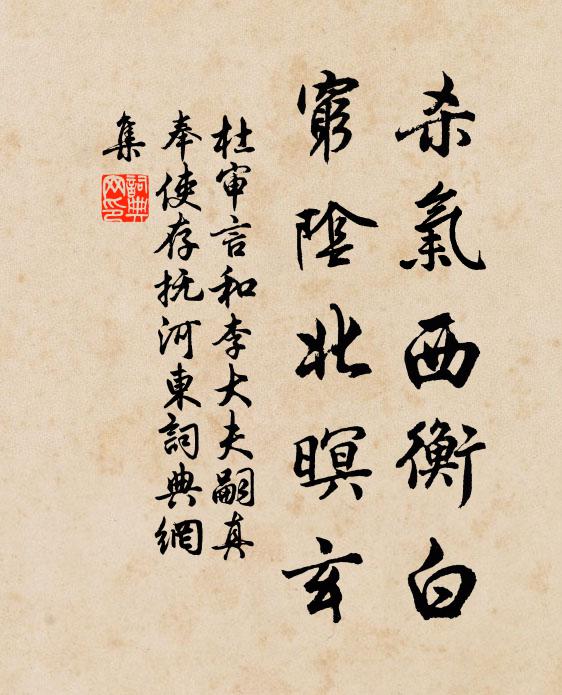 杀氣西衡白
窮陰北暝玄
杜审言和李大夫嗣真
奉使存抚河東詞典網
集
詞典网印